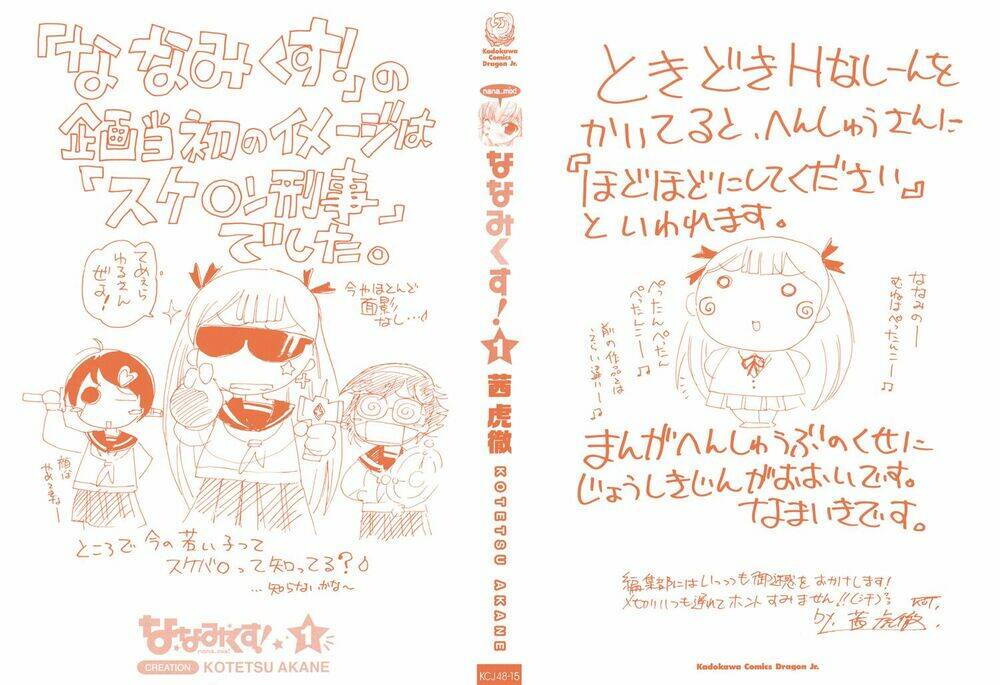 「ななみくす!」の
企画当初のイメージは
「スケ〇ン刑事」
でした。
てめぇら
ゆるさん
ぜよ!
今やほとんど
面影
なし…♪
顔は
やめ
ところで今の若い子って
スケバ〇って知ってる?♪
…知らないかな〜
ななみくす! 1
nana_mix!
CREATION KOTETSU AKANE
Kadokawa
Comics
Dragon Jr.
nana_mix!
ななみくす! 1 茜虎徹 KOTETSU AKANE
KCJ48-15
ときどきHなしーんを
かいてると、へんしゅうさんに
『ほどほどにしてください』
といわれます。
ななみのー
むねはぺったんこー♪
ぺったんぺったん
ぺったんこー♪
前の作品とは
えらい違いー♪
まんがへんしゅうぶのくせに
じょうしきじんがおおいです。
なまいきです。
編集部にはいっつも御迷惑をおかけします!
〆切いつも遅れてホントすみません!!(汗)
by. 茜虎徹
Kadokawa Comics Dragon Jr.